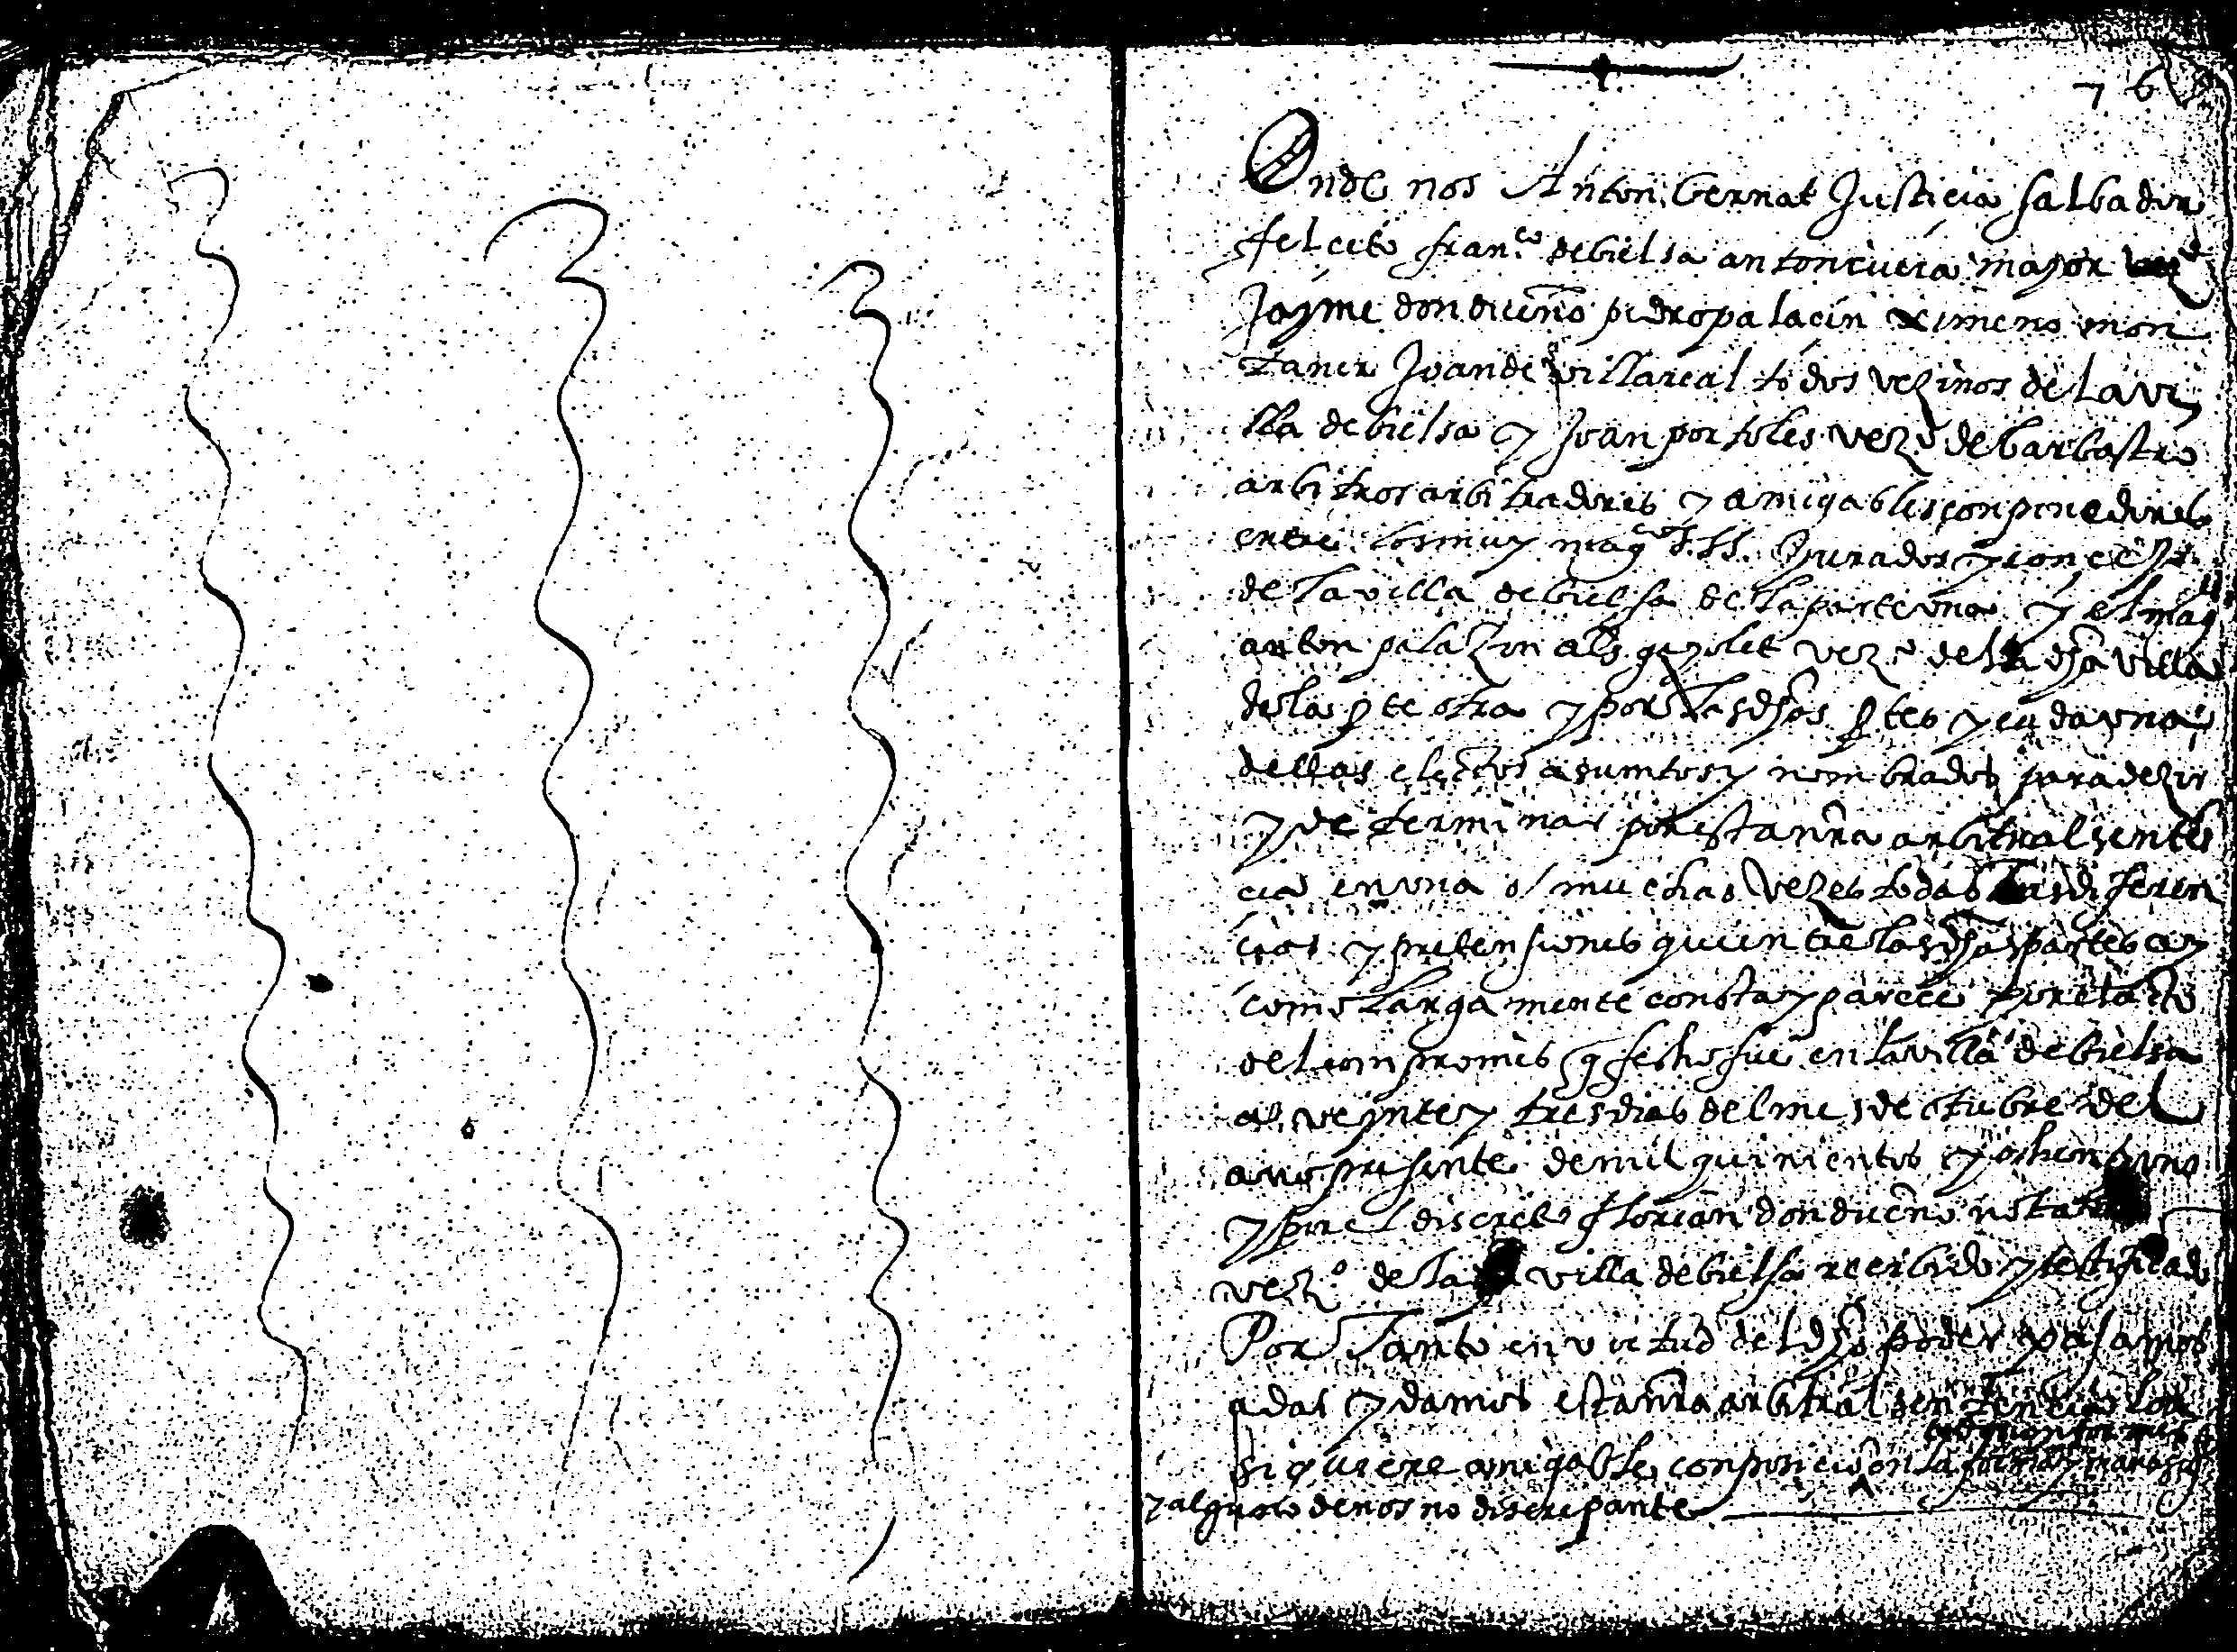 76
Onde nos Anton bernat Justicia salbador
felceto fran.co debielsa anton ruera mayor
Jayme don dueño pedro palacin ximeno mon
taner Joan de villareal todos vezinos de la vi
lla de bielsa y Joan portoles vez.o de barbastro
arbitros arbitradores y amigables conponedores
entre los muy mag.cos SS. Jurados y concejo
de la villa de bielsa de la parte una y el mag.co
anton palazon als gazolet vez.o de la dha villa
de la pte otra y por las dhas ptes y cada una
dellas electos asumtos y nombrados para dezir
y determinar por esta nra arbitral senten
cia en una o muchas vezes todas las diferen
cias y pretensiones que entre las dhas partes ay
como larga mente consta y parece por el acto
del compromis q fecho fue en la villa de bielsa
a veynte y tres dias del mes de otubre del
año presente de mil quinientos y ochenta uno
y por el discreto florian don dueño notario
vez.o de la villa de bielsa recibido y testificado
Por Tanto en virtud del dho poder pasamos
a dar y damos esta nra arbitral sentencia loa
si quiere amigable conposicion en la forma y manera sig.te
y alguno de nos no discrepante